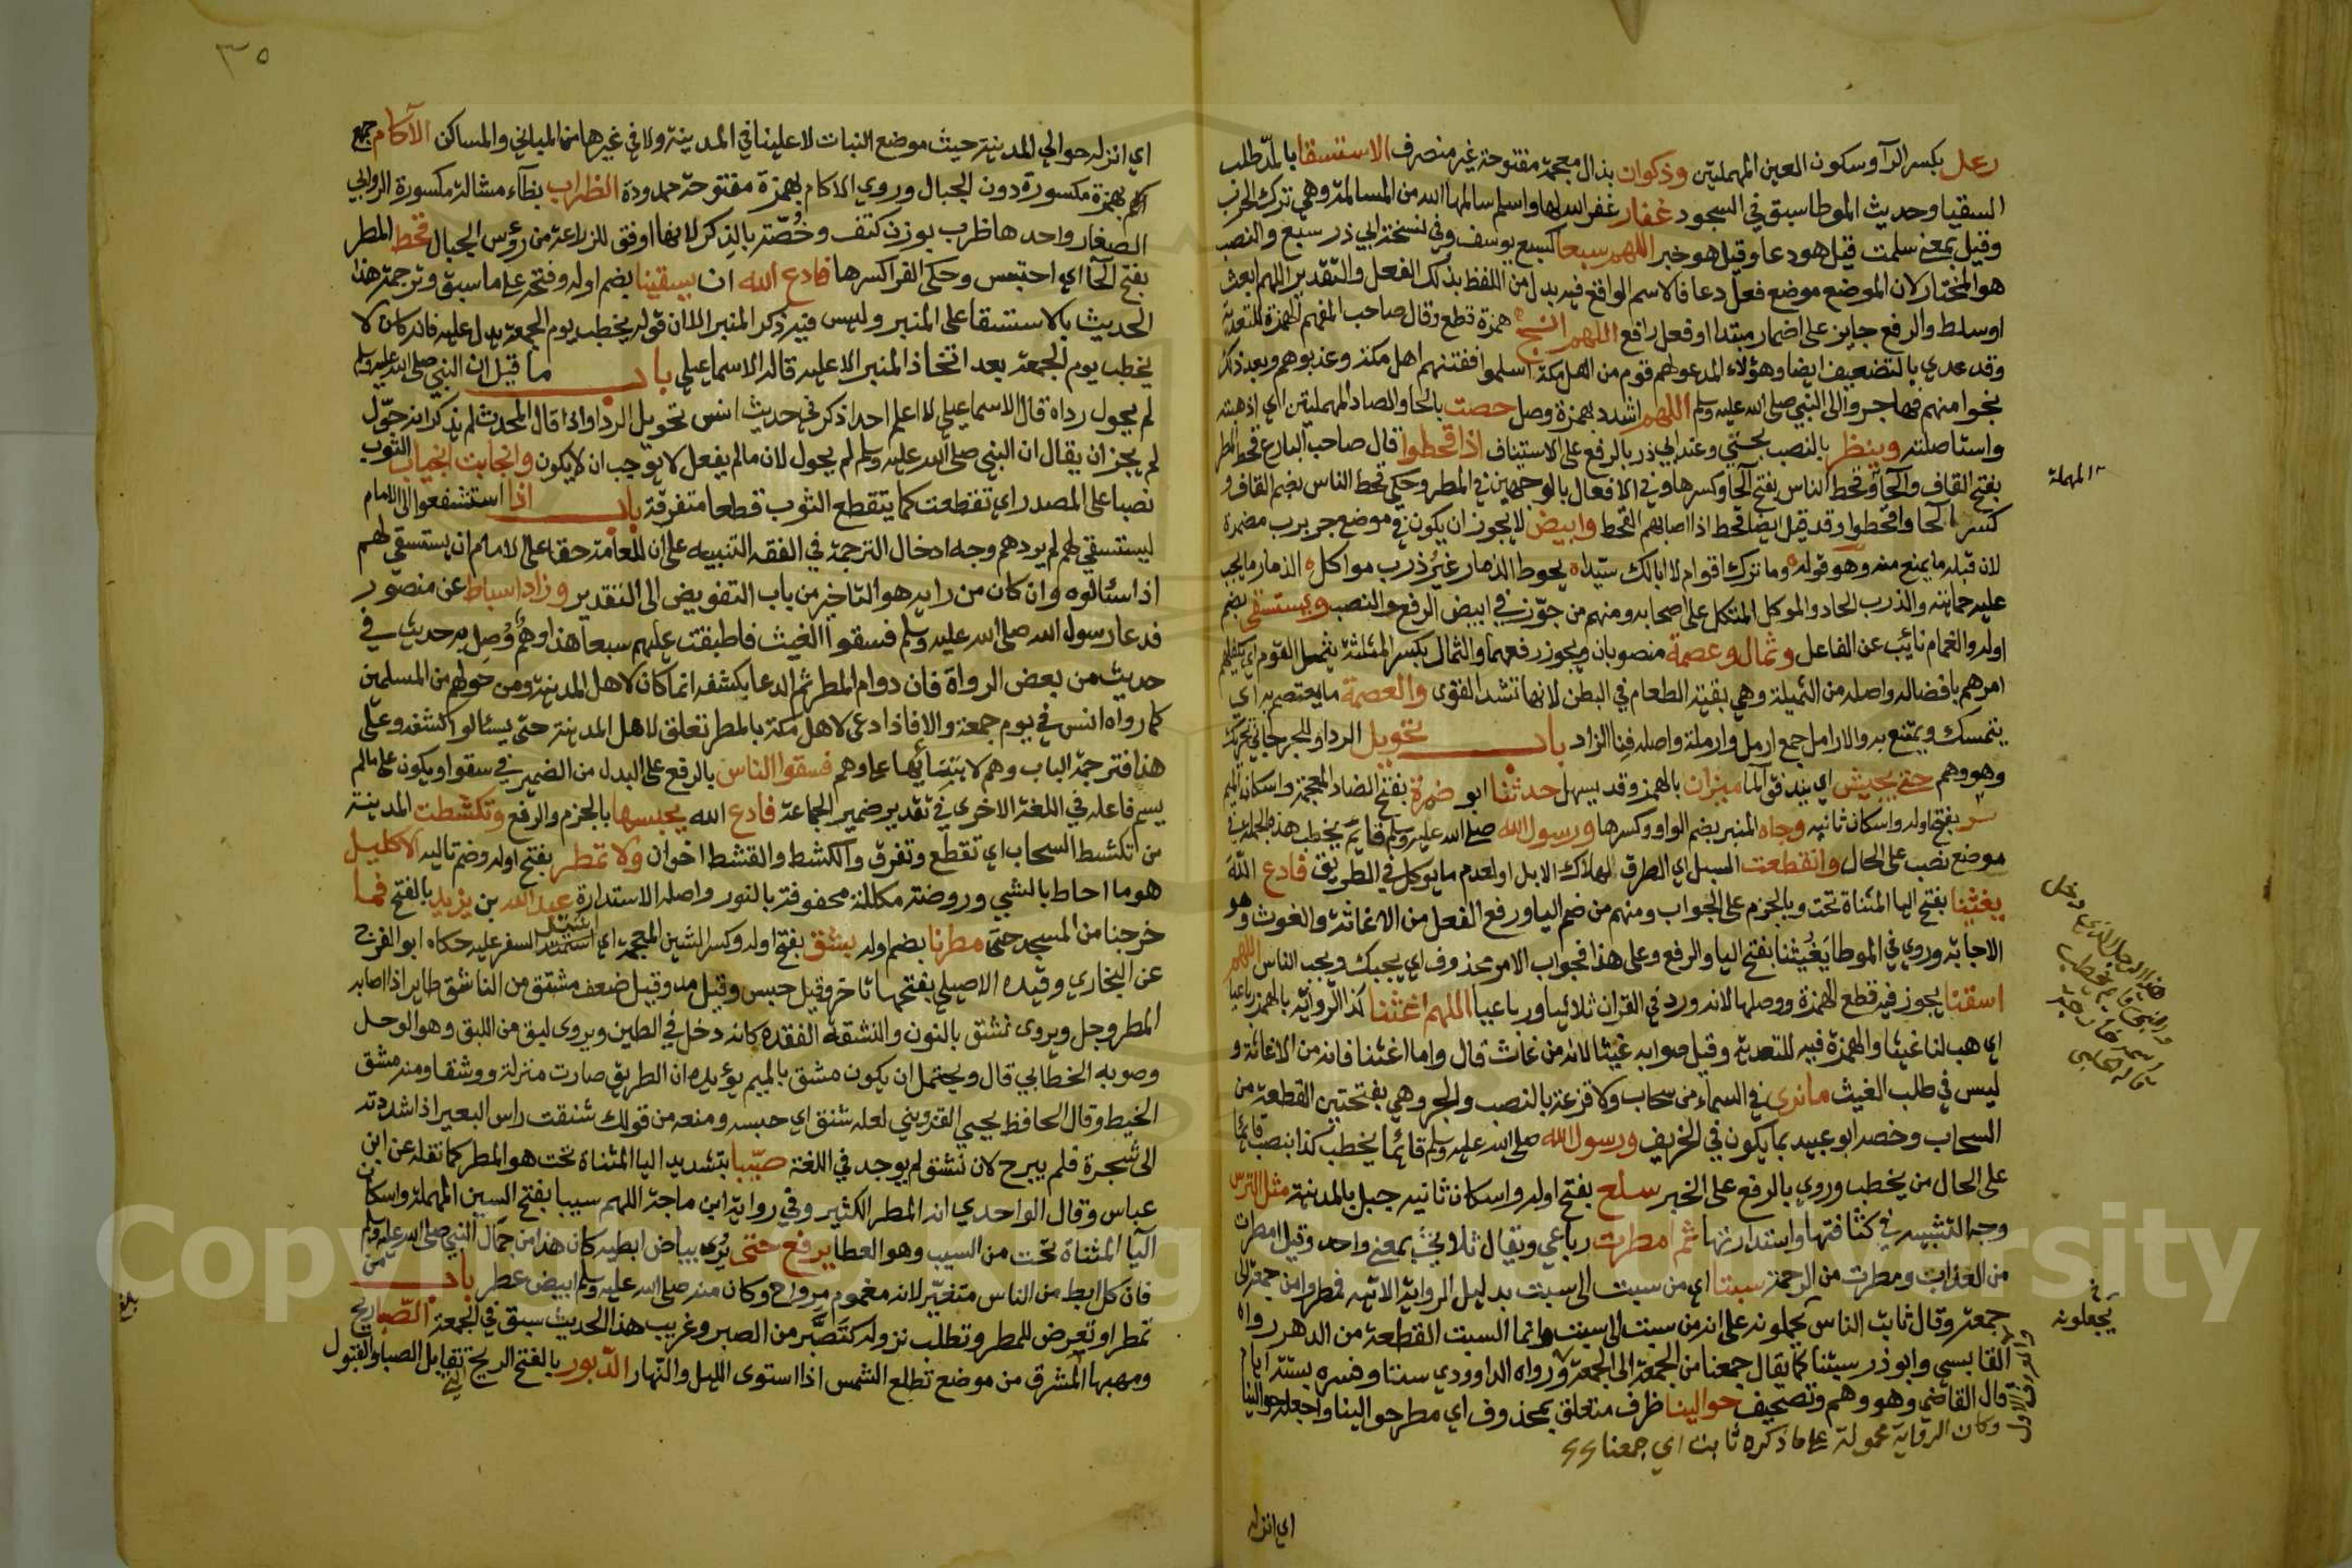 رعل بكسر الرآ وسكون العين المهملتين وذكوان بذال معجمة مفتوحة غير منصرف الاستسقا بالمد طلب
السقيا وحديث الموطا سبق في السجود غفار غفر الله لها واسلم سالمها الله من المسالمة وهي ترك الحرب
وقيل بمعنى سلمت قيل هو دعا وقيل هو خبر اللهم سبعا كسبع يوسف وفي نسخة ابي ذر سبع والنصب
هو المختار لان الموضع موضع فعل دعا فالاسم الواقع فيه بدل من اللفظ بذلك الفعل والتقدير اللهم ابعث
او سلط والرفع جايز على اضمار مبتدا او فعل رافع اللهم انج همزة قطع وقال صاحب المفهم الهمزة للتعدية
وقد عدي بالتضعيف ايضا وهؤلاء المدعو لهم قوم من اهل مكة اسلموا ففتنهم اهل مكة وعذبوهم وبعد ذلك
نجوا منهم فهاجروا الى النبي صلى الله عليه وسلم اللهم اشدد بهمزة وصل حصت بالحا والصاد المهملتين اي اذهبته
واستاصلته وينظر بالنصب بحتي وعند ابي ذر بالرفع على الاستيناف اذا قحطوا قال صاحب البارع قحط المطر
بفتح القاف والحآ وقحط الناس بفتح الحآ وكسرها وفي الافعال بالوجهين في المطر وحكي قحط الناس بضم القاف و
كسر الحا واقحطوا وقد قيل ايضا قحط اذا اصابهم القحط وابيض لا يجوز ان يكون في موضع جر برب مضمرة
لان قبله ما يمنع منه وهو قوله وما ترك اقوام لا ابالك سيدا يحوط الذمار غير ذرب مواكل الذمار ما يجب
عليه حمايته والذرب الحاد والموكل المتكل على اصحابه ومنهم من جوّز في ابيض الرفع والنصب ويستسقى بضم
اوله والغمام نائب عن الفاعل وثمال وعصمة منصوبان ويجوز رفعهما والثمال بكسر المثلثة يثمل القوم اي يكفيهم
امرهم بافضاله واصله من الثميلة وهي بقية الطعام في البطن لانها تشد القوى والعصمة ما يعتصم به اي
يتمسك ويمتنع به والارامل جمع ارمل وارملة واصله فنا الزاد باب تحويل الردا وللجرجاني تحريك
وهو وهم حتى يجيش اي يتدفق الما ميزاب بالهمز وقد يسهل حدثنا ابو ضمرة بفتح الضاد المعجمة واسكان الميم
بفتح اوله واسكان ثانيه وجاه المنبر بضم الواو وكسرها ورسول الله صلى الله عليه وسلم قائم يخطب هذه الجملة في
موضع نصب على الحال وانقطعت السبل اي الطرق لهلاك الابل او لعدم ما يوكل في الطريق فادع الله
يغثنا بفتح اليا المثناة تحت وبالجزم على الجواب ومنهم من ضم اليا ورفع الفعل من الاغاثة والغوث وهو
الاجابة وروي في الموطا يَغُيثنا بفتح اليا والرفع وعلى هذا فجواب الامر محذوف اي يجبك ويحب الناس اللهم
اسقنا يجوز فيه قطع الهمزة ووصلها لانه ورد في القران ثلاثيا ورباعيا اللهم اغثنا كذا الرواية بالهمز رباعيا
اي هب لنا غيثا والهمزة فيه للتعدية وقيل صوابه غيثا لانه من غاث قال واما اغثنا فانه من الاغاثة و
ليس في طلب الغيث ما نرى في السماء من سحاب ولا قزعة بالنصب والجر وهي بفتحتين القطعة من
السحاب وخصه ابو عبيد بما يكون في الخريف ورسول الله صلى الله عليه وسلم قائما يخطب كذا بنصب قائما
على الحال من يخطب وروي بالرفع على الخبر سلع بفتح اوله واسكان ثانيه جبل بالمدينة مثل الترس
وجه التشبيه في كثافتها واستدارتها ثم امطرت رباعي ويقال ثلاثي بمعنى واحد وقيل امطرت
من العذاب ومطرت من الرحمة سبتا اي من سبت الى سبت بدليل الرواية الاتية فمطروا من جمعة الى
جمعة وقال ثابت الناس يحملونه على انه من سبت الى سبت وانما السبت القطعة من الدهر رواه
القابسي وابو ذر سبتنا كما يقال جمعنا من الجمعة الى الجمعة ورواه الداوودي ستا وفسره بستة ايام
قال القاضي وهو وهم وتصحيف حوالينا ظرف متعلق بمحذوف اي مطر حوالينا واجعله حوالينا
وكان الرواية محمولة على ما ذكره ثابت اي جمعنا
اي انزله
المهملة
يجعلونه
٣٥
اي انزله حوالي المدينة حيث موضع النبات لا علينا في المدينة ولا في غيرها من المباني والمساكن الآكام جمع
اكم بهمزة مكسورة دون الجبال وروي الاكام بهمزة مفتوحة ممدودة الظراب بظاء مشالة مكسورة الروابي
الصغار واحدها ظرب بوزن كتف وخُصّت بالذكر لانها اوفق للزراعة من رؤس الجبال قحط المطر
بفتح الحآ اي احتبس وحكى الفرا كسرها فادع الله ان يسقينا بضم اوله وفتحه على ما سبق وترجمة هذا
الحديث بالاستسقا على المنبر وليس فيه ذكر المنبر الا ان قوله يخطب يوم الجمعة يدل عليه فانه كان لا
يخطب يوم الجمعة بعد اتخاذ المنبر الا عليه قاله الاسماعيلي باب ما قيل ان النبي صلى الله عليه وسلم
لم يحول رداه قال الاسماعيلي لا اعلم احدا ذكر في حديث انس تحويل الردا واذا قال المحدث لم يذكر انه حوّل
لم يجز ان يقال ان النبي صلى الله عليه وسلم لم يحول لان ما لم يفعل لا يوجب ان لا يكون وانجابت انجياب الثوب
نصبا على المصدر اي تقطعت كما يتقطع الثوب قطعا متفرقة باب اذا استشفعوا الى الامام
ليستسقي لهم لم يردهم وجه ادخال الترجمة في الفقه التنبيه على ان للعامة حقا على الامام ان يستسقي لهم
اذا سئالوه وان كان من رايه هو التاخير من باب التفويض الى التقدير وزاد اسباط عن منصور
فدعا رسول الله صلى الله عليه وسلم فسقوا الغيث فاطبقت عليهم سبعا هذا وهم وُصِل به حديث في
حديث من بعض الرواة فان دوام المطر ثم الدعا بكشفه انما كان لاهل المدينة ومن حولهم من المسلمين
كما رواه انس في يوم جمعة والا فاذا دعى لاهل مكة بالمطر تعلق لاهل المدينة حتى يسئالوا كشفه وعلى
هذا فترجمة الباب وهم لا يتشائها على وهم فسقوا الناس بالرفع على البدل من الضمير في سقوا ويكون على ما لم
يسم فاعله في اللغة الاخرى في تقدير ضمير الجماعة فادع الله يحبسها بالجزم والرفع وتكشطت المدينة
من تكشط السحاب اي تقطع وتفرق والكشط والقشط اخوان ولا تمطر بفتح اوله وضم تاليه الاكليل
هو ما احاط بالشي وروضة مكللة محفوفة بالنور واصله الاستدارة عبد الله بن يزيد بالفتح فما
خرجنا من المسجد حتى مطرنا بضم اوله بشق بفتح اوله وكسر الشين المعجمة اي اشتد السفر عليه حكاه ابو الفرج
عن البخاري وقيده الاصيلي بفتحهما تاخر وقيل حبس وقيل مد وقيل ضعف مشتق من الناشق طاير اذا اصابه
المطر وجل ويروى نشق بالنون والنشقة الفقدة كانه دخل في الطين ويروى لبق من اللبق وهو الوحل
وصوبه الخطابي قال ويحتمل ان يكون مشق بالميم يؤيده ان الطريق صارت منزلة ووشقا ومنه مشق
الخيط وقال الحافظ يحيى القزويني لعله شنق اي حبسه ومنعه من قولك شنقت راس البعير اذا شددته
الى شجرة فلم يبرح لان نشق لم يوجد في اللغة صيّبا بتشديد اليا المثناة تحت هو المطر كما نقله عن ابن
عباس وقال الواحدي انه المطر الكثير وفي رواية ابن ماجة اللهم سيبا بفتح السين المهملة واسكان
اليآ المثناة تحت من السيب وهو العطا يرفع حتى يُرى بياض ابطيه كان هذا من جمال النبي صلى الله عليه وسلم
فان كل ابط من الناس متغيّر لانه مغموم مرواح وكان منه صلى الله عليه وسلم ابيض عطر باب من
تمطر او تعرض للمطر وتطلب نزوله كتَصَبَّر من الصبر وغريب هذا الحديث سبق في الجمعة الصبا ريح
ومهبها المشرق من موضع تطلع الشمس اذا استوى الليل والنهار الدبور بالفتح الريح التي تقابل الصبا والقبول
Copyright © King Saud University